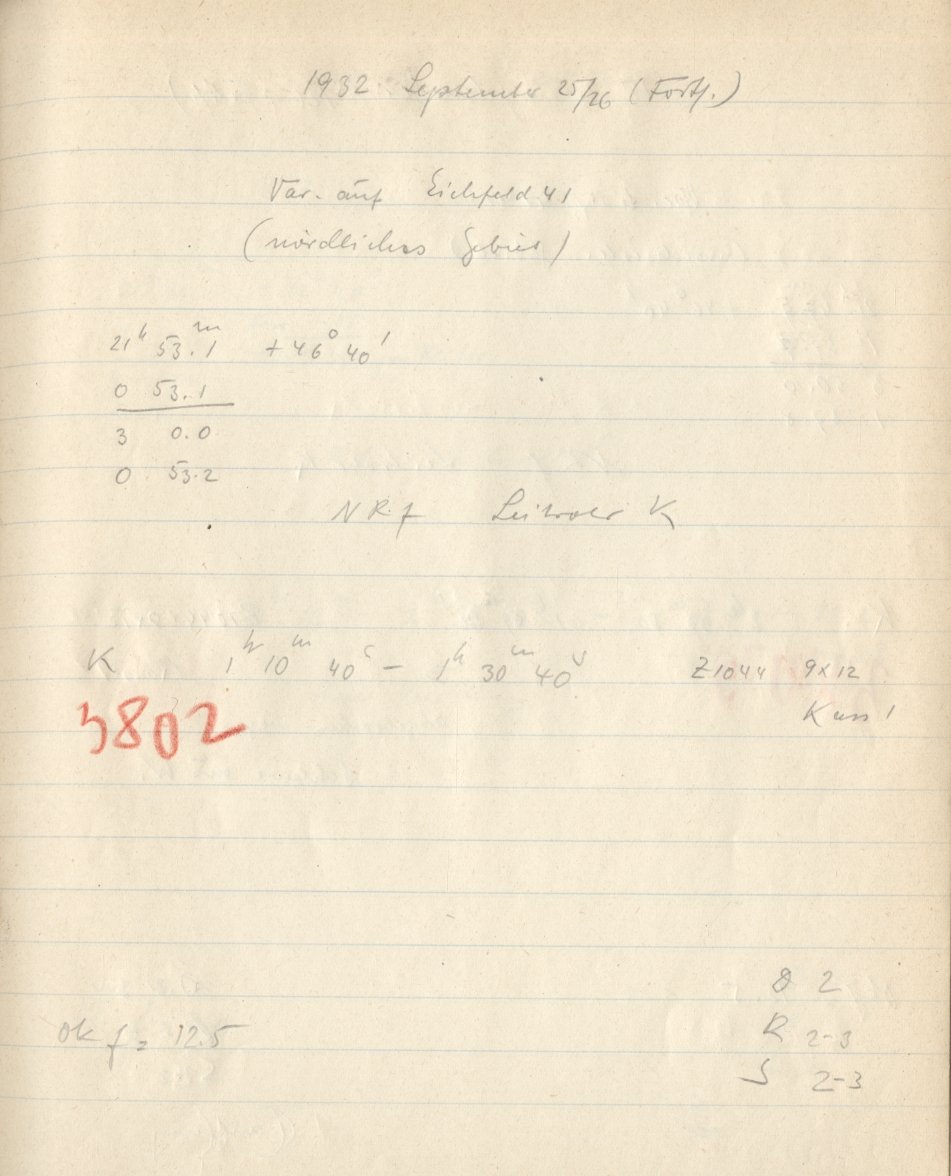 1932 September 25/26 (Forts.)
Var. auf Eichfeld 41
(nördliches Gebiet)
21ʰ 53.1ᵐ +46° 40'
0 53.1
3 0.0
0 53.2
NRf K
K 1ʰ 10ᵐ 40ˢ – 1ʰ 30ᵐ 40ˢ Z1044 9x12
Kass 1
3802
D 2
ok f = 12.5 R 2-3
S 2-3